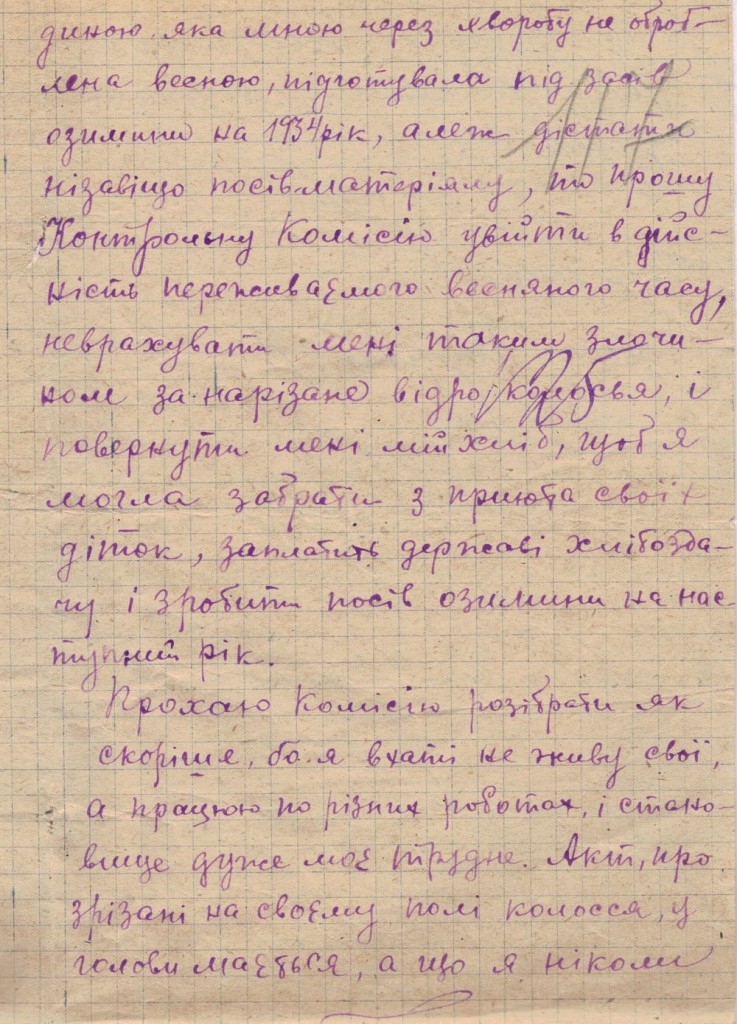 диною яка мною через хворобу не оброб-
лена весною, підготувала під засів
озимини на 1934 рік, алеж дістати
нізавіщо посівматеріялу, то прошу
Контрольну Комісію увійти в дійс-
ність переживаємого весняного часу,
неврахувати мені таким злочи-
ном за нарізане відро колосья, і
повернути мені мій хліб, щоб я
могла забрати з приюта своїх
діток, заплатить державі хлібозда-
чу і зробити посів озимини на нас-
тупний рік.
Прохаю Комісію розібрати як
скоріше, бо я вхаті не живу свої,
а працюю по різних роботах, і стано-
вище дуже моє трудне. Акт, про
зрізані на своєму полі колосся, у
голови мається, а що я ніколи